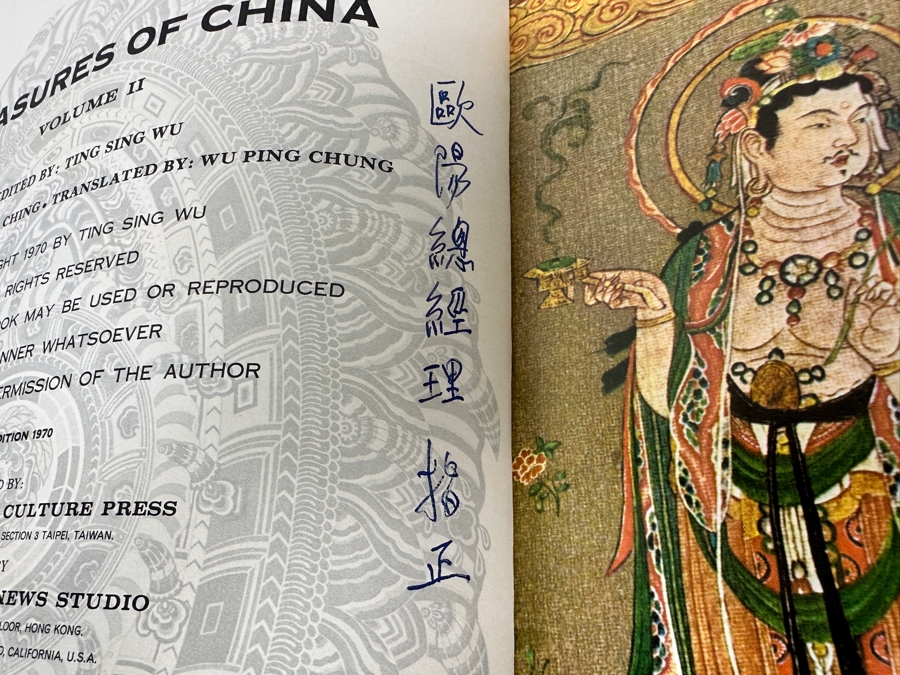 ASURES OF CHINA
VOLUME II
EDITED BY: TING SING WU
CHING • TRANSLATED BY: WU PING CHUNG
GHT 1970 BY TING SING WU
RIGHTS RESERVED
OOK MAY BE USED OR REPRODUCED
NNER WHATSOEVER
ERMISSION OF THE AUTHOR
DITION 1970
D BY:
CULTURE PRESS
SECTION 3 TAIPEI, TAIWAN.
BY
NEWS STUDIO
LOOR, HONG KONG.
O, CALIFORNIA, U.S.A.
歐陽總經理指正